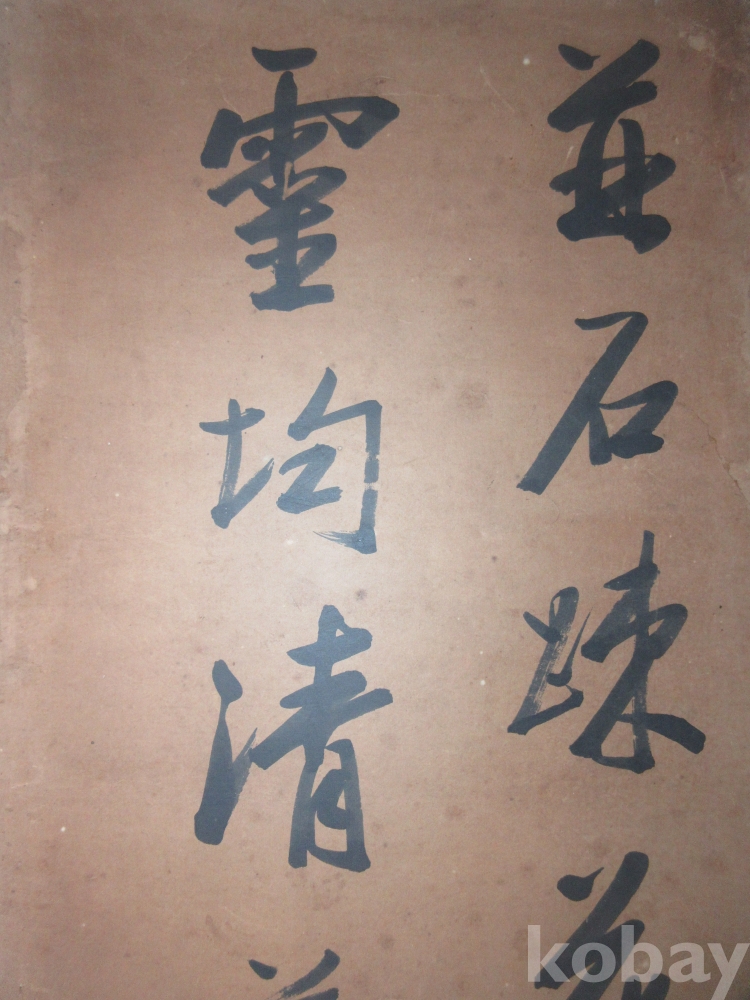 並石踈
靈均清
kobay